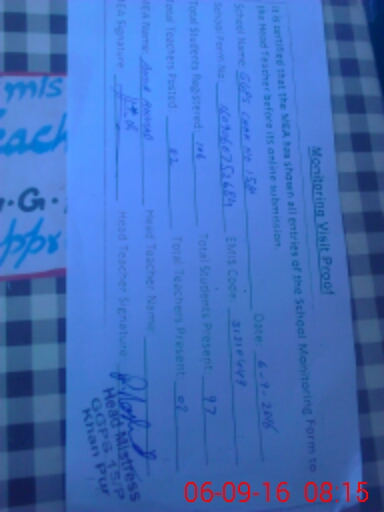 Monitoring Visit Proof
It is certified that the MEA has shown all entries of the School Monitoring Form to
the Head Teacher before its online submission.
Date: 6-9-2016
School Name: GGPS Chak No 15P
School Form No. EMIS Code: 31210449
Total Students Registered 106 Total Students Present: 97
Total Teachers Posted 02 Total Teachers Present: 02
MEA Name: Head Teacher Name:
MEA Signature Head Teacher Signature:
Head Mistress
GGPS 15/P
Khan Pur
mls
each
.G.
Appr
06-09-16 08:15